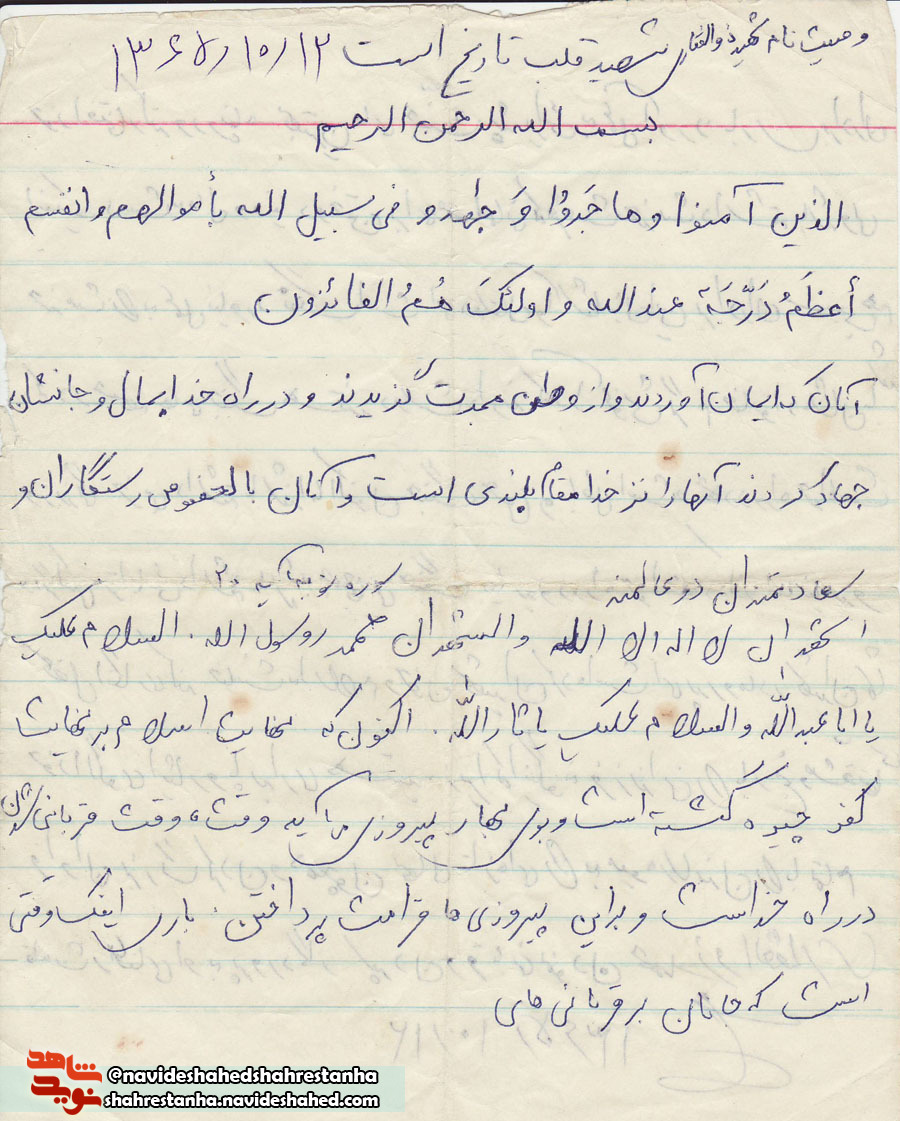 وصیت نام شهید ذوالفقار شهید قلب تاریخ است ۱۳۶۵/۱۰/۱۲
بسم الله الرحمن الرحیم
الذین آمنوا و هاجَروُا وَ جاهدو فی سبیل الله بأموالهم وانفسم
أعظَمُ دَرَّجَة عندالله و اولئکَ هُمُ الفائزون
آنان که ایمان آوردند و از وطن هجرت گزیدند و در راه خدا بمال و جانشان
جهاد کردند آنهارا نزد خدا مقام بلندی است و آنان بالخصوص رستگاران و
سعادتمندان دو عالمند سوره توبه آیه ۲۰
اشهدان لا اله الا الله والشهدان محمد روسول الله. السلام علیک
یا ابا عبدالله والسلام علیک یا ثارالله. اکنون که نهایت اسلام بر نهایت
کفر چیره گشته است و بوی بهار پیروزی می آید وقت، وقت قربانی شدن
در راه خداست و برای پیروزی ها قرامت پرداختن. بارسا اینک وقتی
است که جانان بر قربانی های
شاهد
نوید
@navideshahedshahrestanha
shahrestanha.navideshahed.com